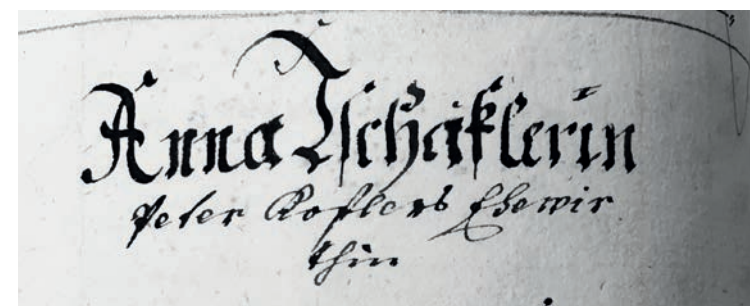 Anna Tschäklerin
Peter Koflers Ehewir
thin